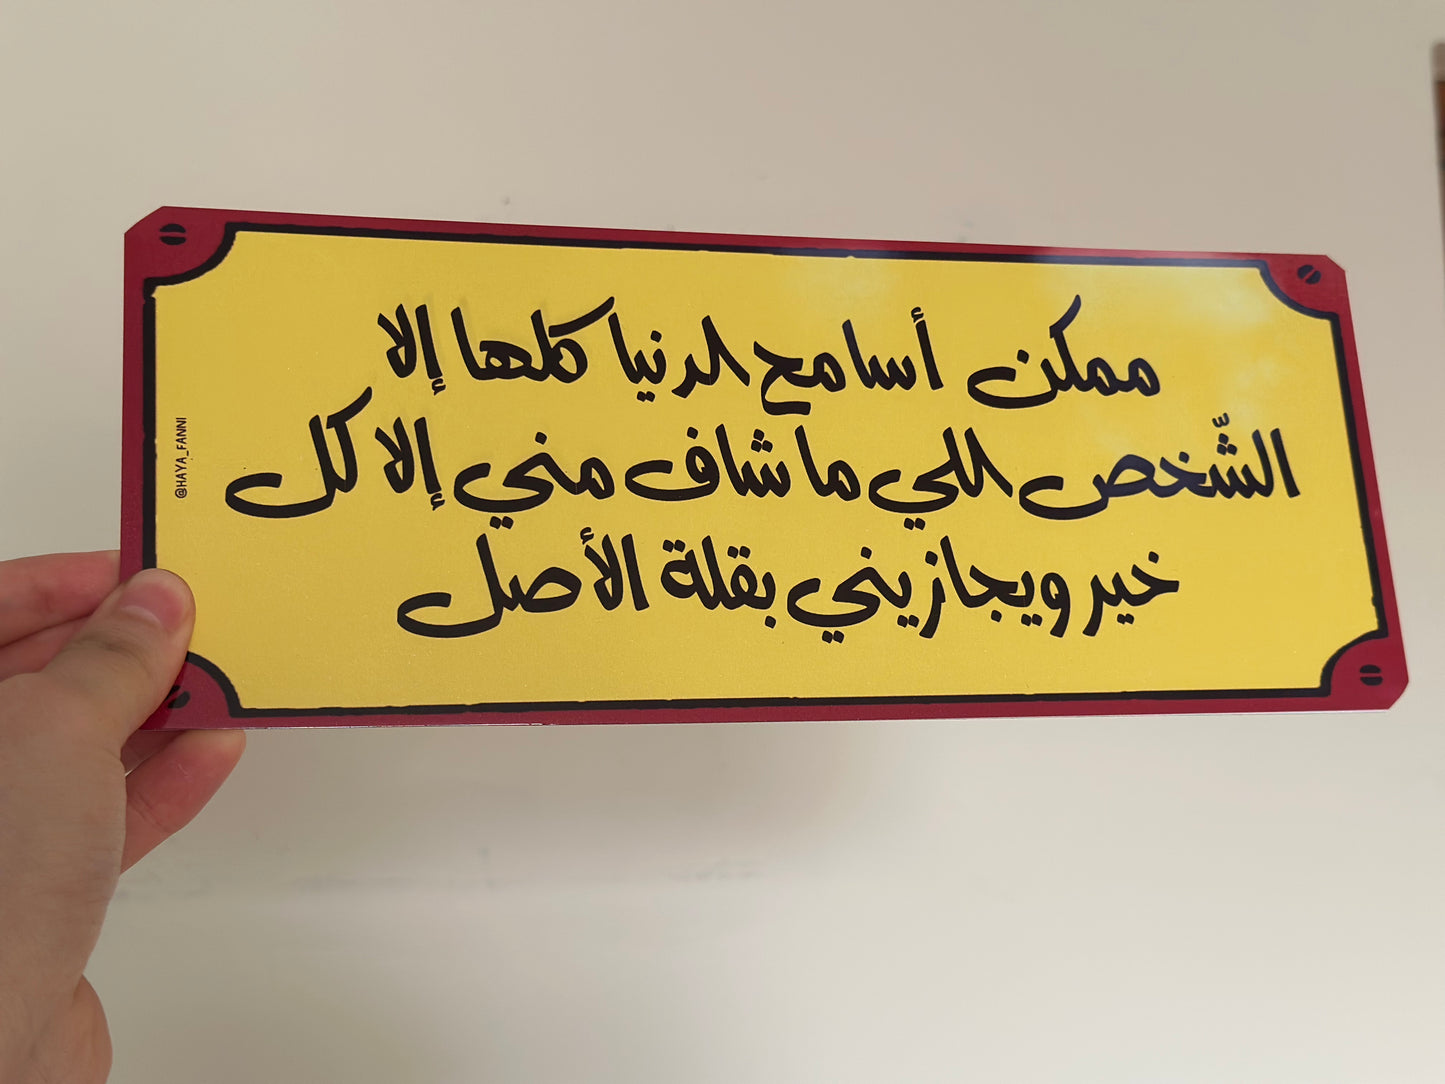 ممكن أسامح الدنيا كلها إلا
الشّخص اللي ما شاف مني إلا كل
خير ويجازيني بقلة الأصل
@HAYA_FANNI